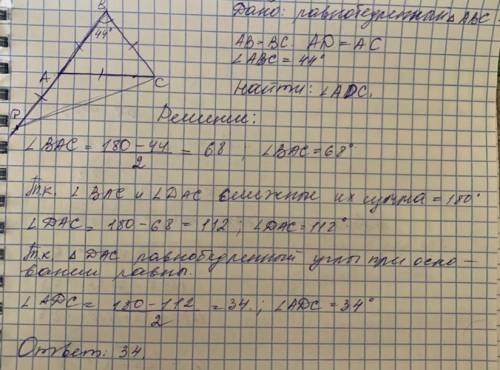 B
44°
A
C
D
Дано: равнобедренный △ABC
AB=BC AD=AC
∠ABC=44°
Найти: ∠ADC.
Решение:
∠BAC = 180-44 / 2 = 68 ; ∠BAC=68°
Т.к. ∠BAC и ∠DAC смежные их сумма =180°
∠DAC= 180-68=112 ; ∠DAC=112°
Т.к. △DAC равнобедренный углы при осно-
вании равны.
∠ADC= 180-112 / 2 =34 ; ∠ADC=34°
Ответ: 34.